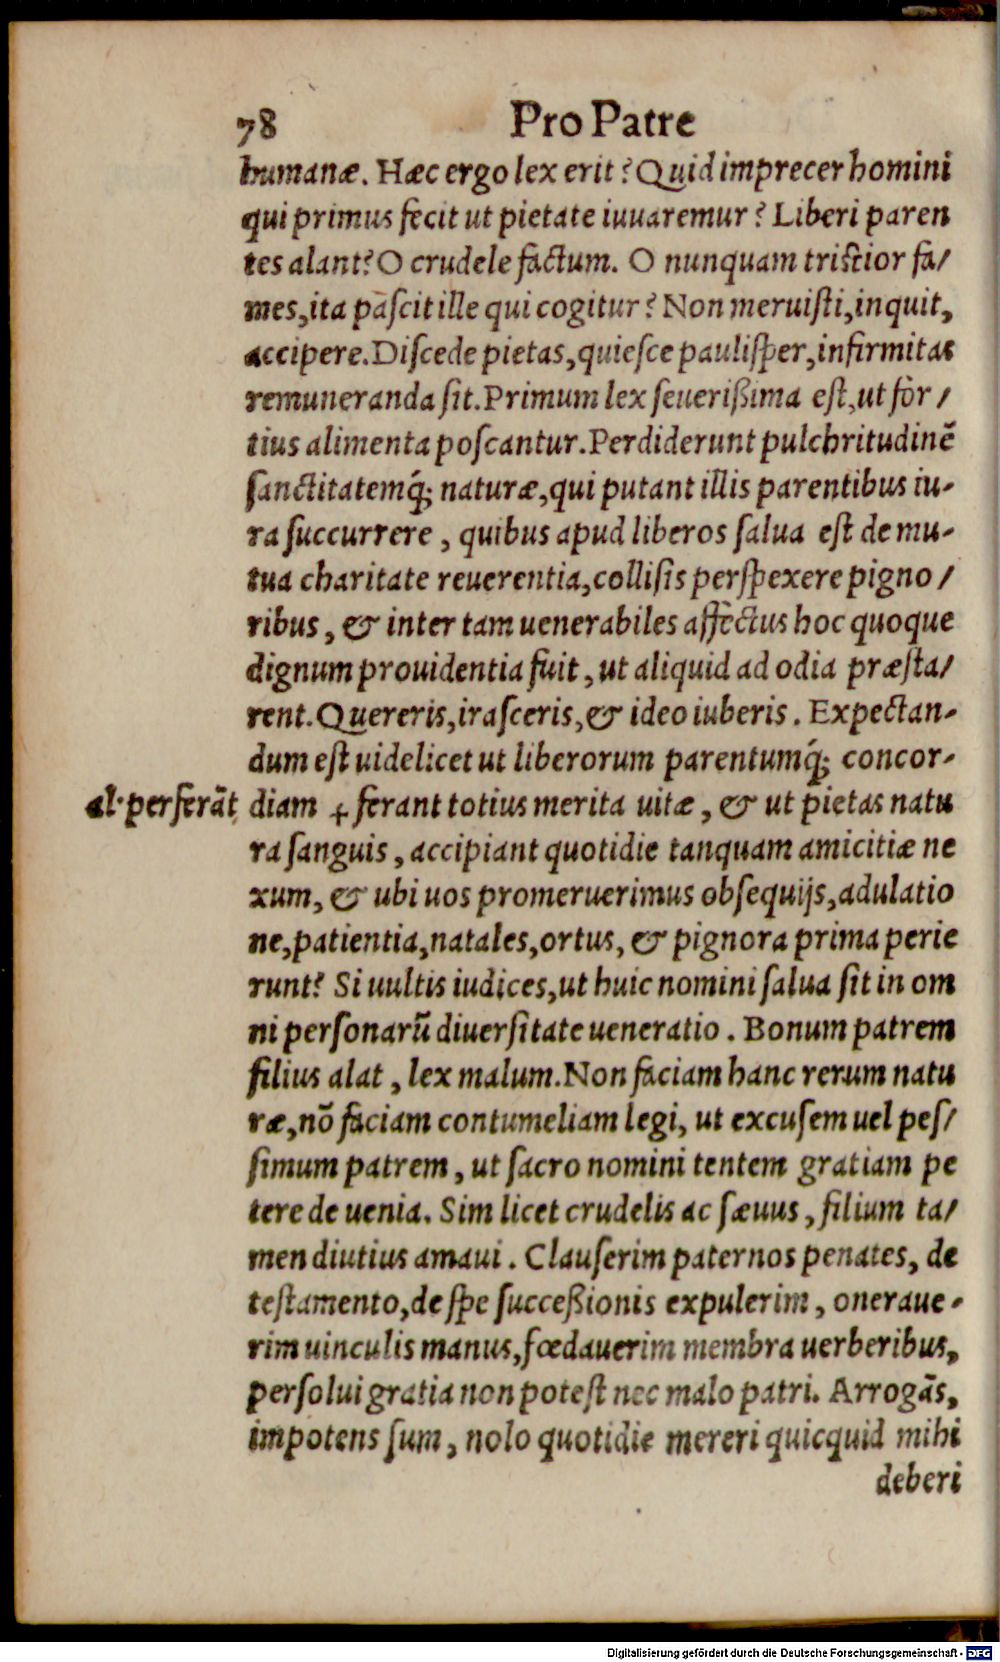 78 Pro Patre
humanæ. Hæc ergo lex erit? Quid imprecer homini
qui primus fecit ut pietate iuuaremur? Liberi paren
tes alant? O crudele factum. O nunquam tristior fa/
mes, ita pascit ille qui cogitur? Non meruisti, inquit,
accipere. Discede pietas, quiesce paulisper, infirmitas
remuneranda sit. Primum lex seuerißima est, ut for/
tius alimenta poscantur. Perdiderunt pulchritudinẽ
sanctitatemq́; naturæ, qui putant illis parentibus iu-
ra succurrere, quibus apud liberos salua est de mu-
tua charitate reuerentia, collisis perspexere pigno/
ribus, & inter tam uenerabiles affectus hoc quoque
dignum prouidentia fuit, ut aliquid ad odia præsta/
rent. Quereris, irasceris, & ideo iuberis. Expectan-
dum est uidelicet ut liberorum parentumq́; concor-
al· perferãt diam + ferant totius merita uitæ, & ut pietas natu
ra sanguis, accipiant quotidie tanquam amicitiæ ne
xum, & ubi uos promeruerimus obsequijs, adulatio
ne, patientia, natales, ortus, & pignora prima perie
runt? Si uultis iudices, ut huic nomini salua sit in om
ni personarũ diuersitate ueneratio. Bonum patrem
filius alat, lex malum. Non faciam hanc rerum natu
ræ, nõ faciam contumeliam legi, ut excusem uel pes/
simum patrem, ut sacro nomini tentem gratiam pe
tere de uenia. Sim licet crudelis ac sæuus, filium ta/
men diutius amaui. Clauserim paternos penates, de
testamento, de spe succeßionis expulerim, oneraue-
rim uinculis manus, fœdauerim membra uerberibus,
persolui gratia non potest nec malo patri. Arrogãs,
impotens sum, nolo quotidie mereri quicquid mihi
deberi
Digitalisierung gefördert durch die Deutsche Forschungsgemeinschaft - DFG